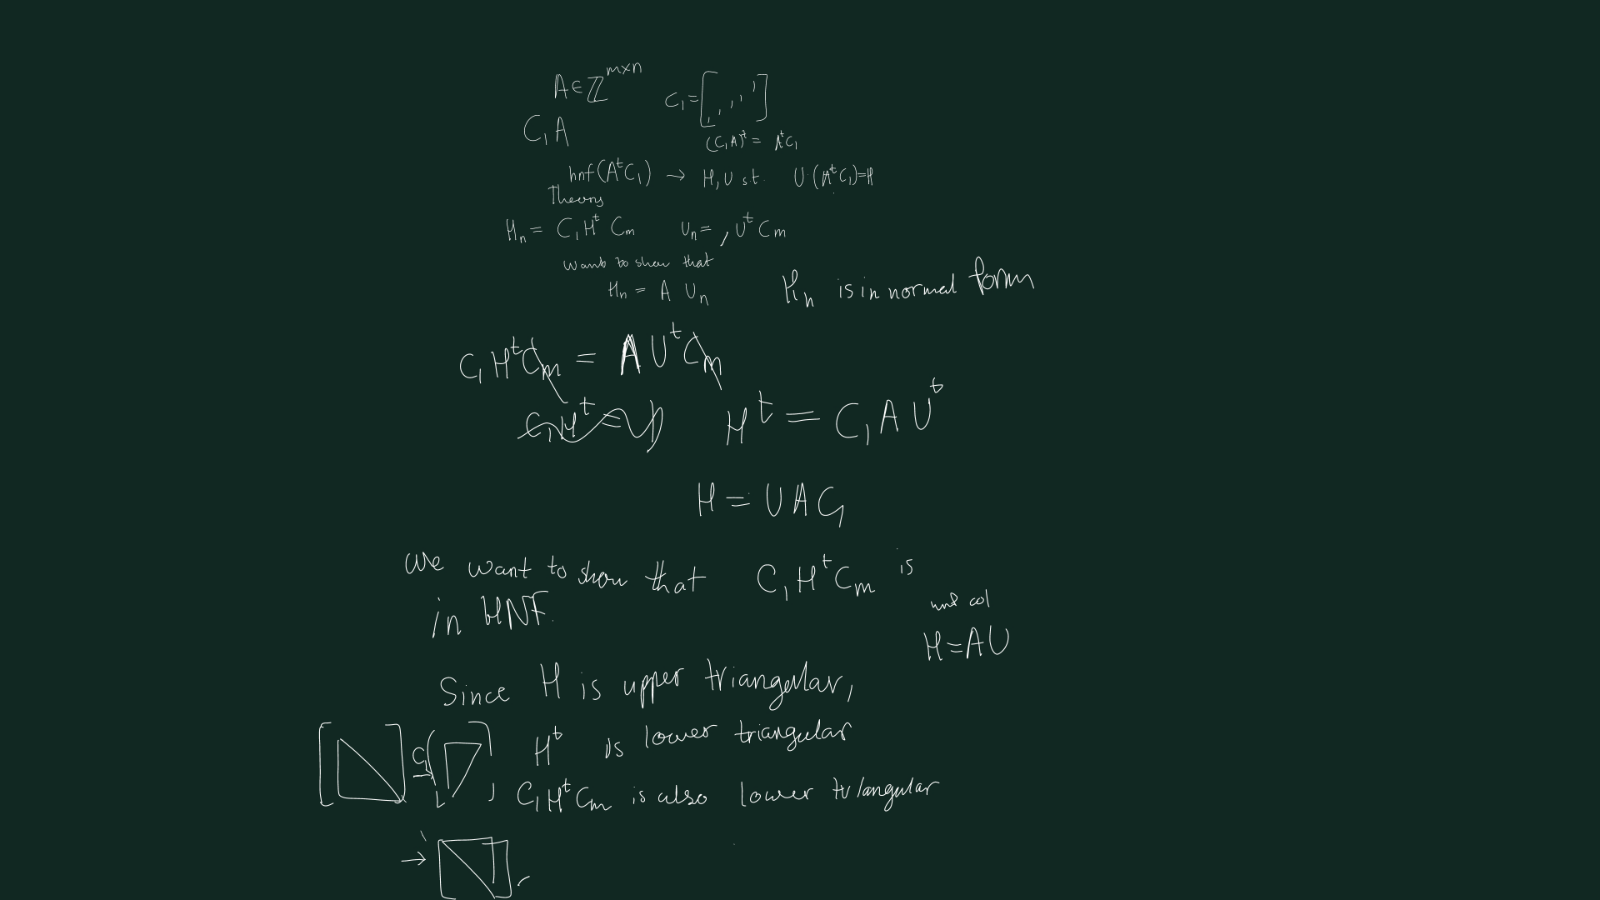 A∈ℤ^{m×n} C₁=[⋰]
C₁A
(C₁A)ᵗ = AᵗC₁
hnf(AᵗC₁) → H,U st. U·(AᵗC₁)=H
Theory
Hₙ = C₁HᵗCₘ Uₙ= , UᵗCₘ
want to show that
Hₙ = A Uₙ Hₙ is in normal form
C₁HᵗCₘ = AUᵗCₘ
Hᵗ = C₁AUᵗ
H = UAC₁
we want to show that C₁HᵗCₘ is
in HNF.
col
H=AU
Since H is upper triangular,
Hᵗ is lower triangular
C₁
C₁HᵗCₘ is also lower triangular
→